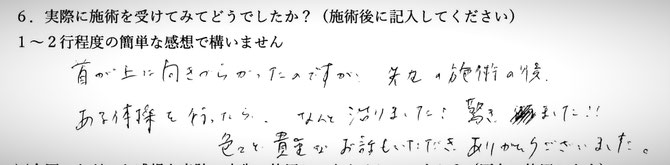 6．実際に施術を受けてみてどうでしたか？（施術後に記入してください）
1～2行程度の簡単な感想で構いません
首が上に向きづらかったのですが、先生の施術の後、
ある体操を行ったら、なんと治りました！驚きました!!
色々と貴重なお話もいただきありがとうございました。